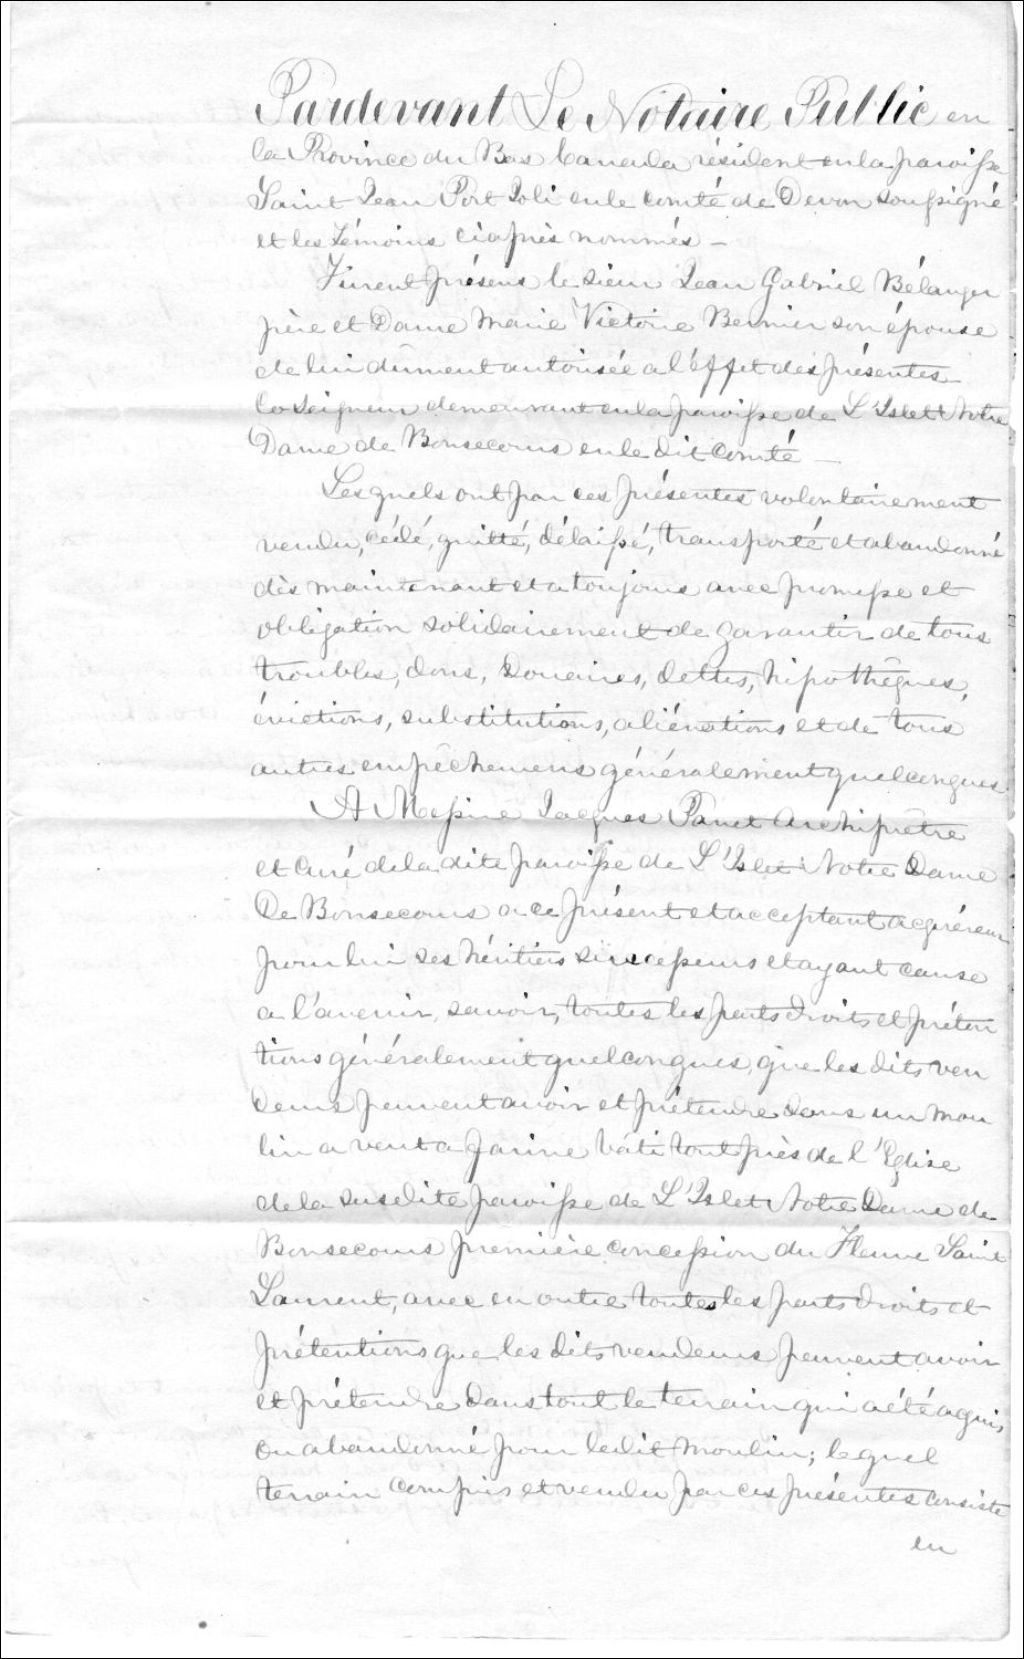 Pardevant Le Notaire Public en
la Province du Bas Canada résident en la paroisse
Saint Jean Port Joli en le comté de Devon soussigné
et les témoins ciaprès nommés —
Furent présens le sieur Jean Gabriel Bélanger
père et Dame Marie Victoire Bernier son épouse
de lui dûment autorisée a l'éffet des présentes
Co Seigneur demeurant en la paroisse de L'Islet Notre
Dame de Bonsecours en le dit Comté —
Lesquels ont par ces présentes volontairement
vendu, cédé, quitté, délaissé, transporté et abandonné
dès maintenant et a toujours avec promesse et
obligation solidairement de garantir de tous
troubles, dons, Douaires, dettes, hipothêques,
évictions, substitutions, aliénations et de tous
autres empêchemens généralement quelconques
A Messire Jacques Panet Archiprêtre
et Curé de la dite paroisse de L'Islet Notre Dame
De Bonsecours a ce présent et acceptant acquéreur
pour lui ses héritiers successeurs et ayant cause
a l'avenir, savoir, toutes les parts droits et préten
tions généralement quelconques, que les dits ven
deurs peuvent avoir et prétendre dans un mou
lin a vent a farine bâti tout près de l'Eglise
de la susdite paroisse de L'Islet Notre Dame de
Bonsecours première concession du Fleuve Saint
Laurent, avec en outre toutes les parts droits et
prétentions que les dits vendeurs peuvent avoir
et prétendre dans tout le terrain qui a été aquis,
ou abandonné pour ledit moulin; lequel
terrain compris et vendu par ces présentes consiste
en